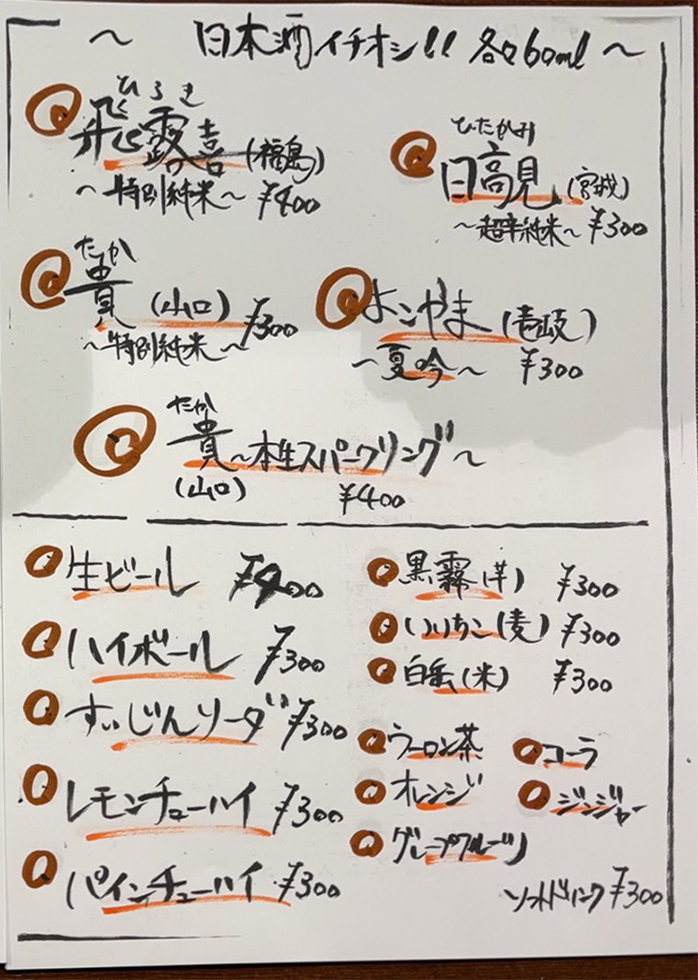 ～ 日本酒イチオシ!! 各々60ml ～
ひろき
飛露喜 (福島)
～特別純米～ ¥400
ひたかみ
日高見 (宮城)
～超辛純米～ ¥300
たか
貴 (山口) ¥300
～特別純米～
よこやま (壱岐)
～夏吟～ ¥300
たか
貴～本生スパークリング～
(山口) ¥400
生ビール ¥400
ハイボール ¥300
すいじんソーダ ¥300
レモンチューハイ ¥300
パインチューハイ ¥300
黒霧(芋) ¥300
いいちこ(麦) ¥300
白岳(米) ¥300
ウーロン茶 コーラ
オレンジ ジンジャー
グレープフルーツ
ソフトドリンク ¥300